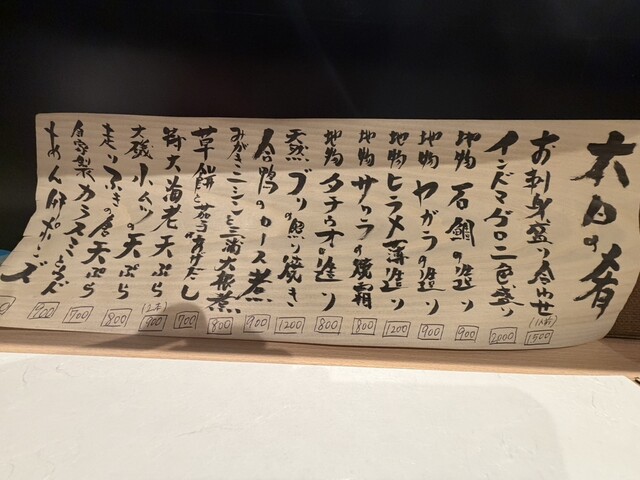 本日の肴
お刺身盛り合わせ (1人前) 1500
インドマグロ二色盛り 2000
地物 石鯛の造り 900
地物 ヤガラの造り 900
地物 ヒラメ薄造り 1200
地物 サワラの焼霜 800
地物 タチウオの造り 800
天然 ブリの照り焼き 1200
合鴨のロース煮 900
みがきニシンと三浦大根煮 800
草餅と茄子のあげだし 700
大海老天ぷら (2本) 900
大磯小ムツの天ぷら 800
走りふきの天ぷら 700
自家製カラスミ 900
チーズ